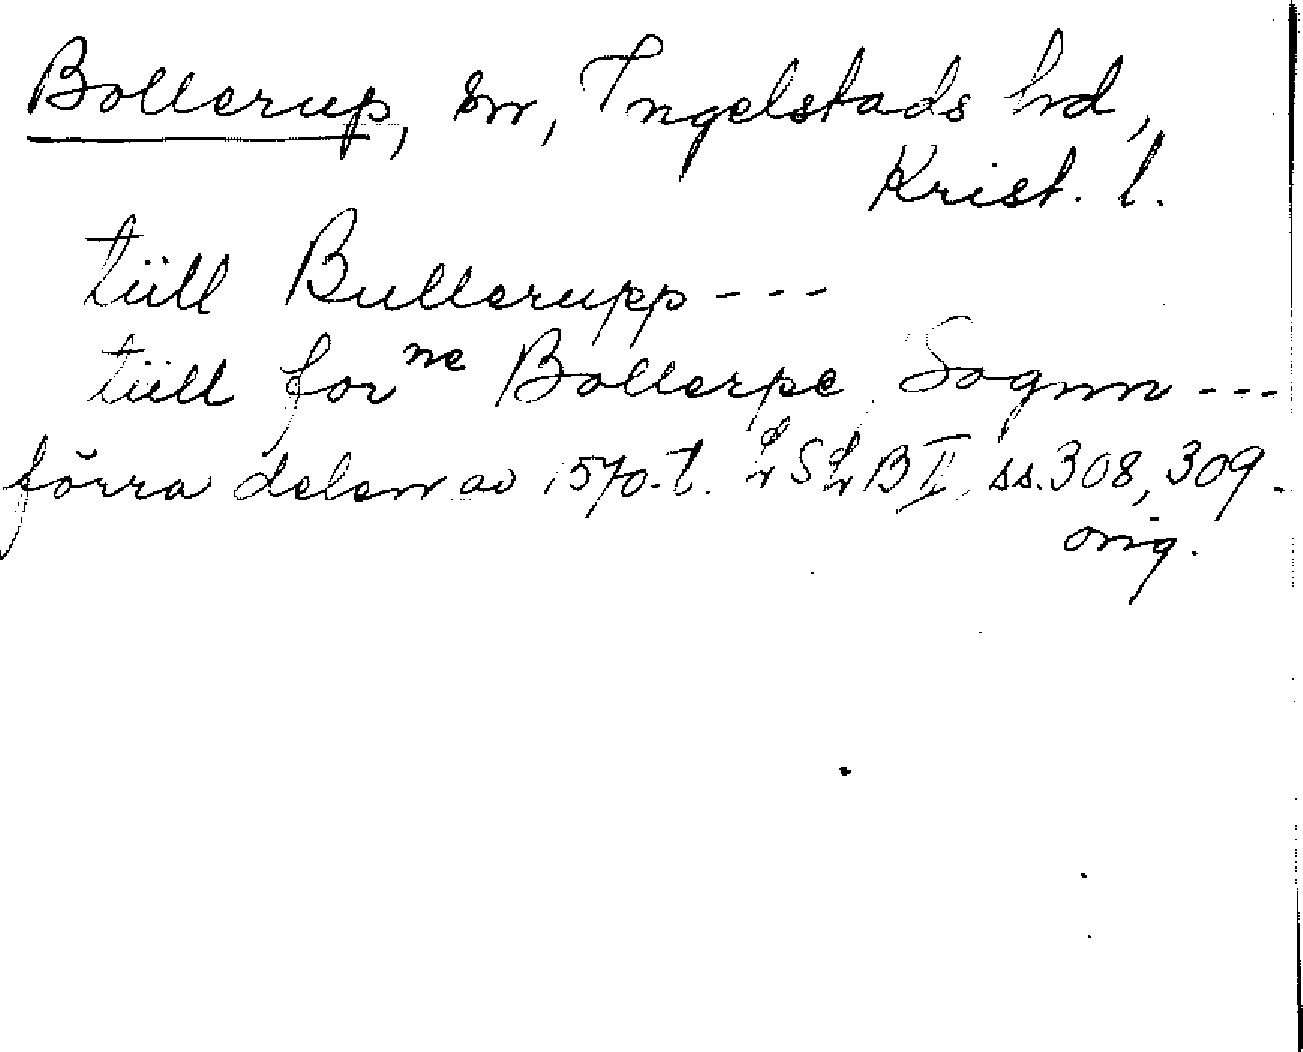 Bollerup, sn, Ingelstads hd,
Krist. l.
tüll Bullerupp ---
tüll forne Bollerpe Sognn ---
förra delen av 1570-t. LSLB II, ss. 308, 309.
orig.